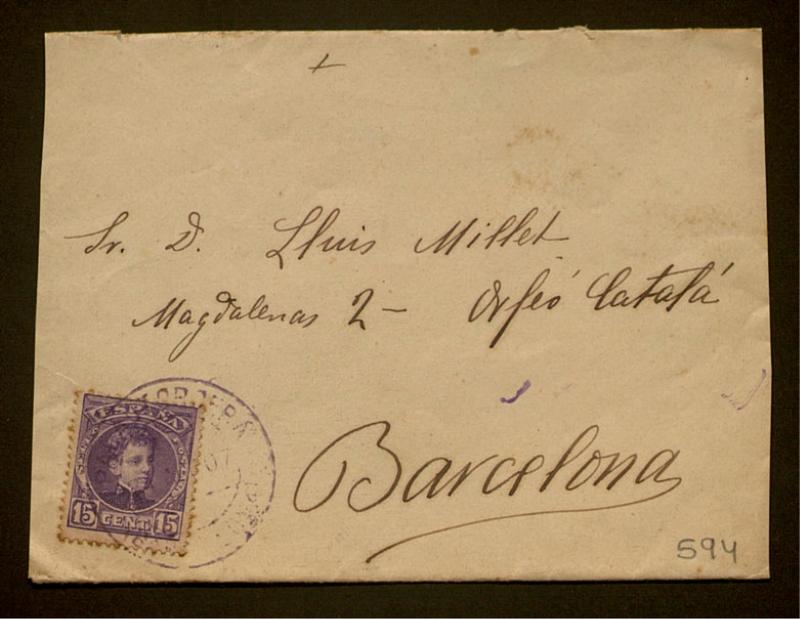 Sr. D. Lluis Millet
Magdalenas 2 - Orfeó Catalá
Barcelona
ESPAÑA
15 CENT 15
07
594